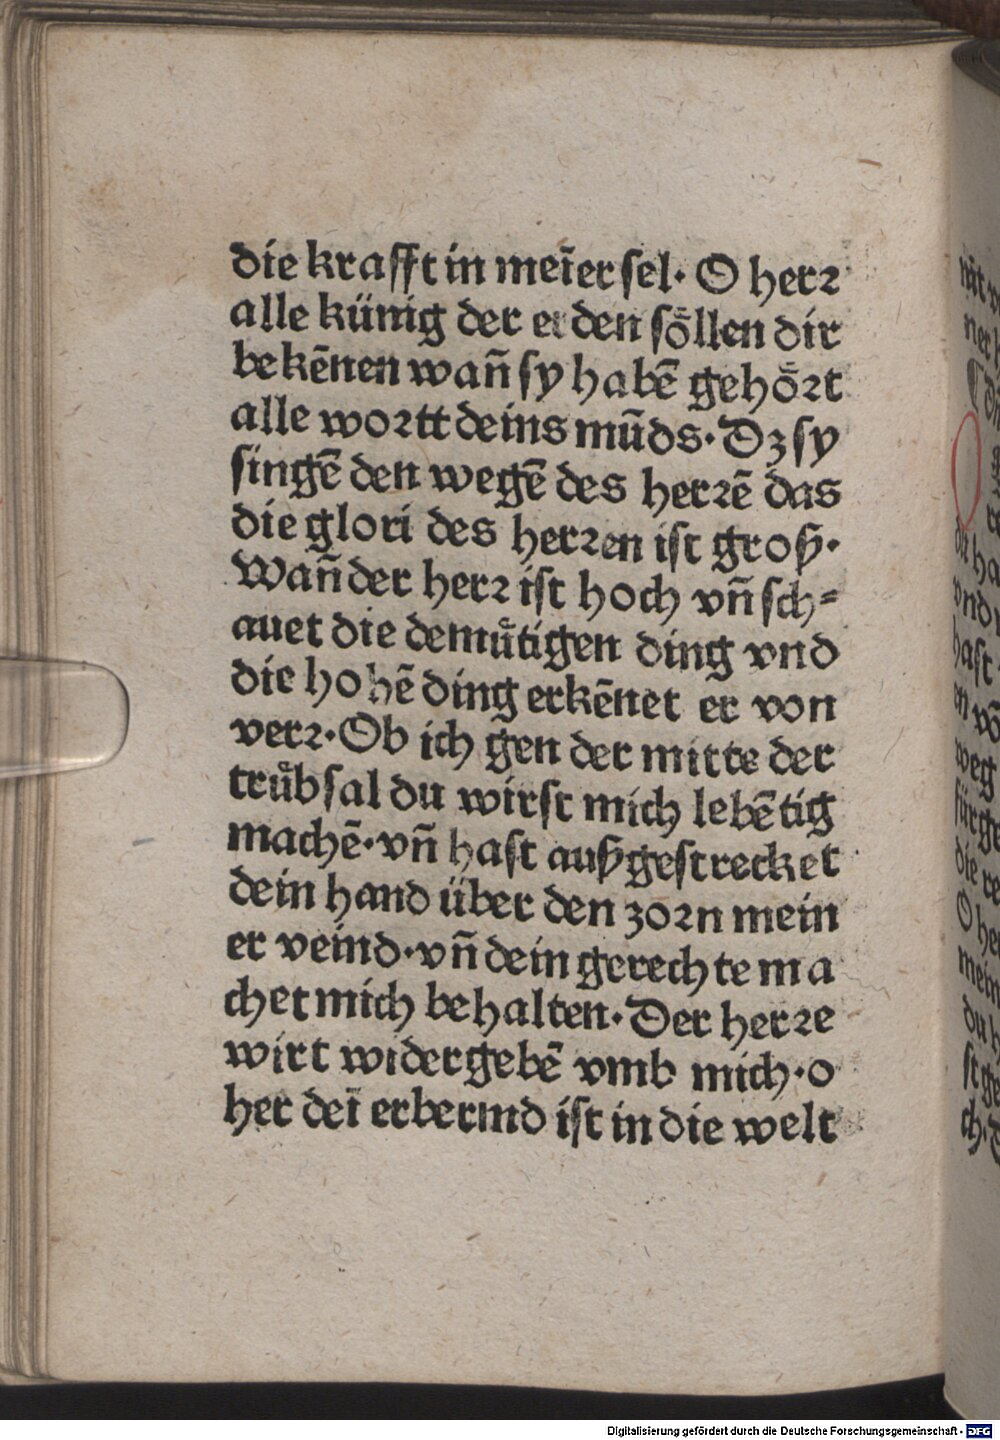 die krafft in meĩer sel. O herꝛ
alle künig der erden soͤllen dir
bekēnen wañ sy habẽ gehoͤꝛt
alle woꝛtt deins mũds. Dz sy
singẽ den wegẽ des herꝛẽ das
die glori des herꝛen ist groß.
Wañ der herꝛ ist hoch vñ sch⸗
auet die demuͤtigen ding vnd
die hohẽ ding erkẽnet er von
verꝛ. Ob ich gen der mitte der
truͤbsal du wirst mich lebẽtig
machẽ. vñ hast außgestrecket
dein hand über den zoꝛn mein
er veind. vñ dein gerechte ma
chet mich behalten. Der herꝛe
wirt widergebẽ vmb mich. o
her deĩ erbermd ist in die welt
Digitalisierung gefördert durch die Deutsche Forschungsgemeinschaft - DFG